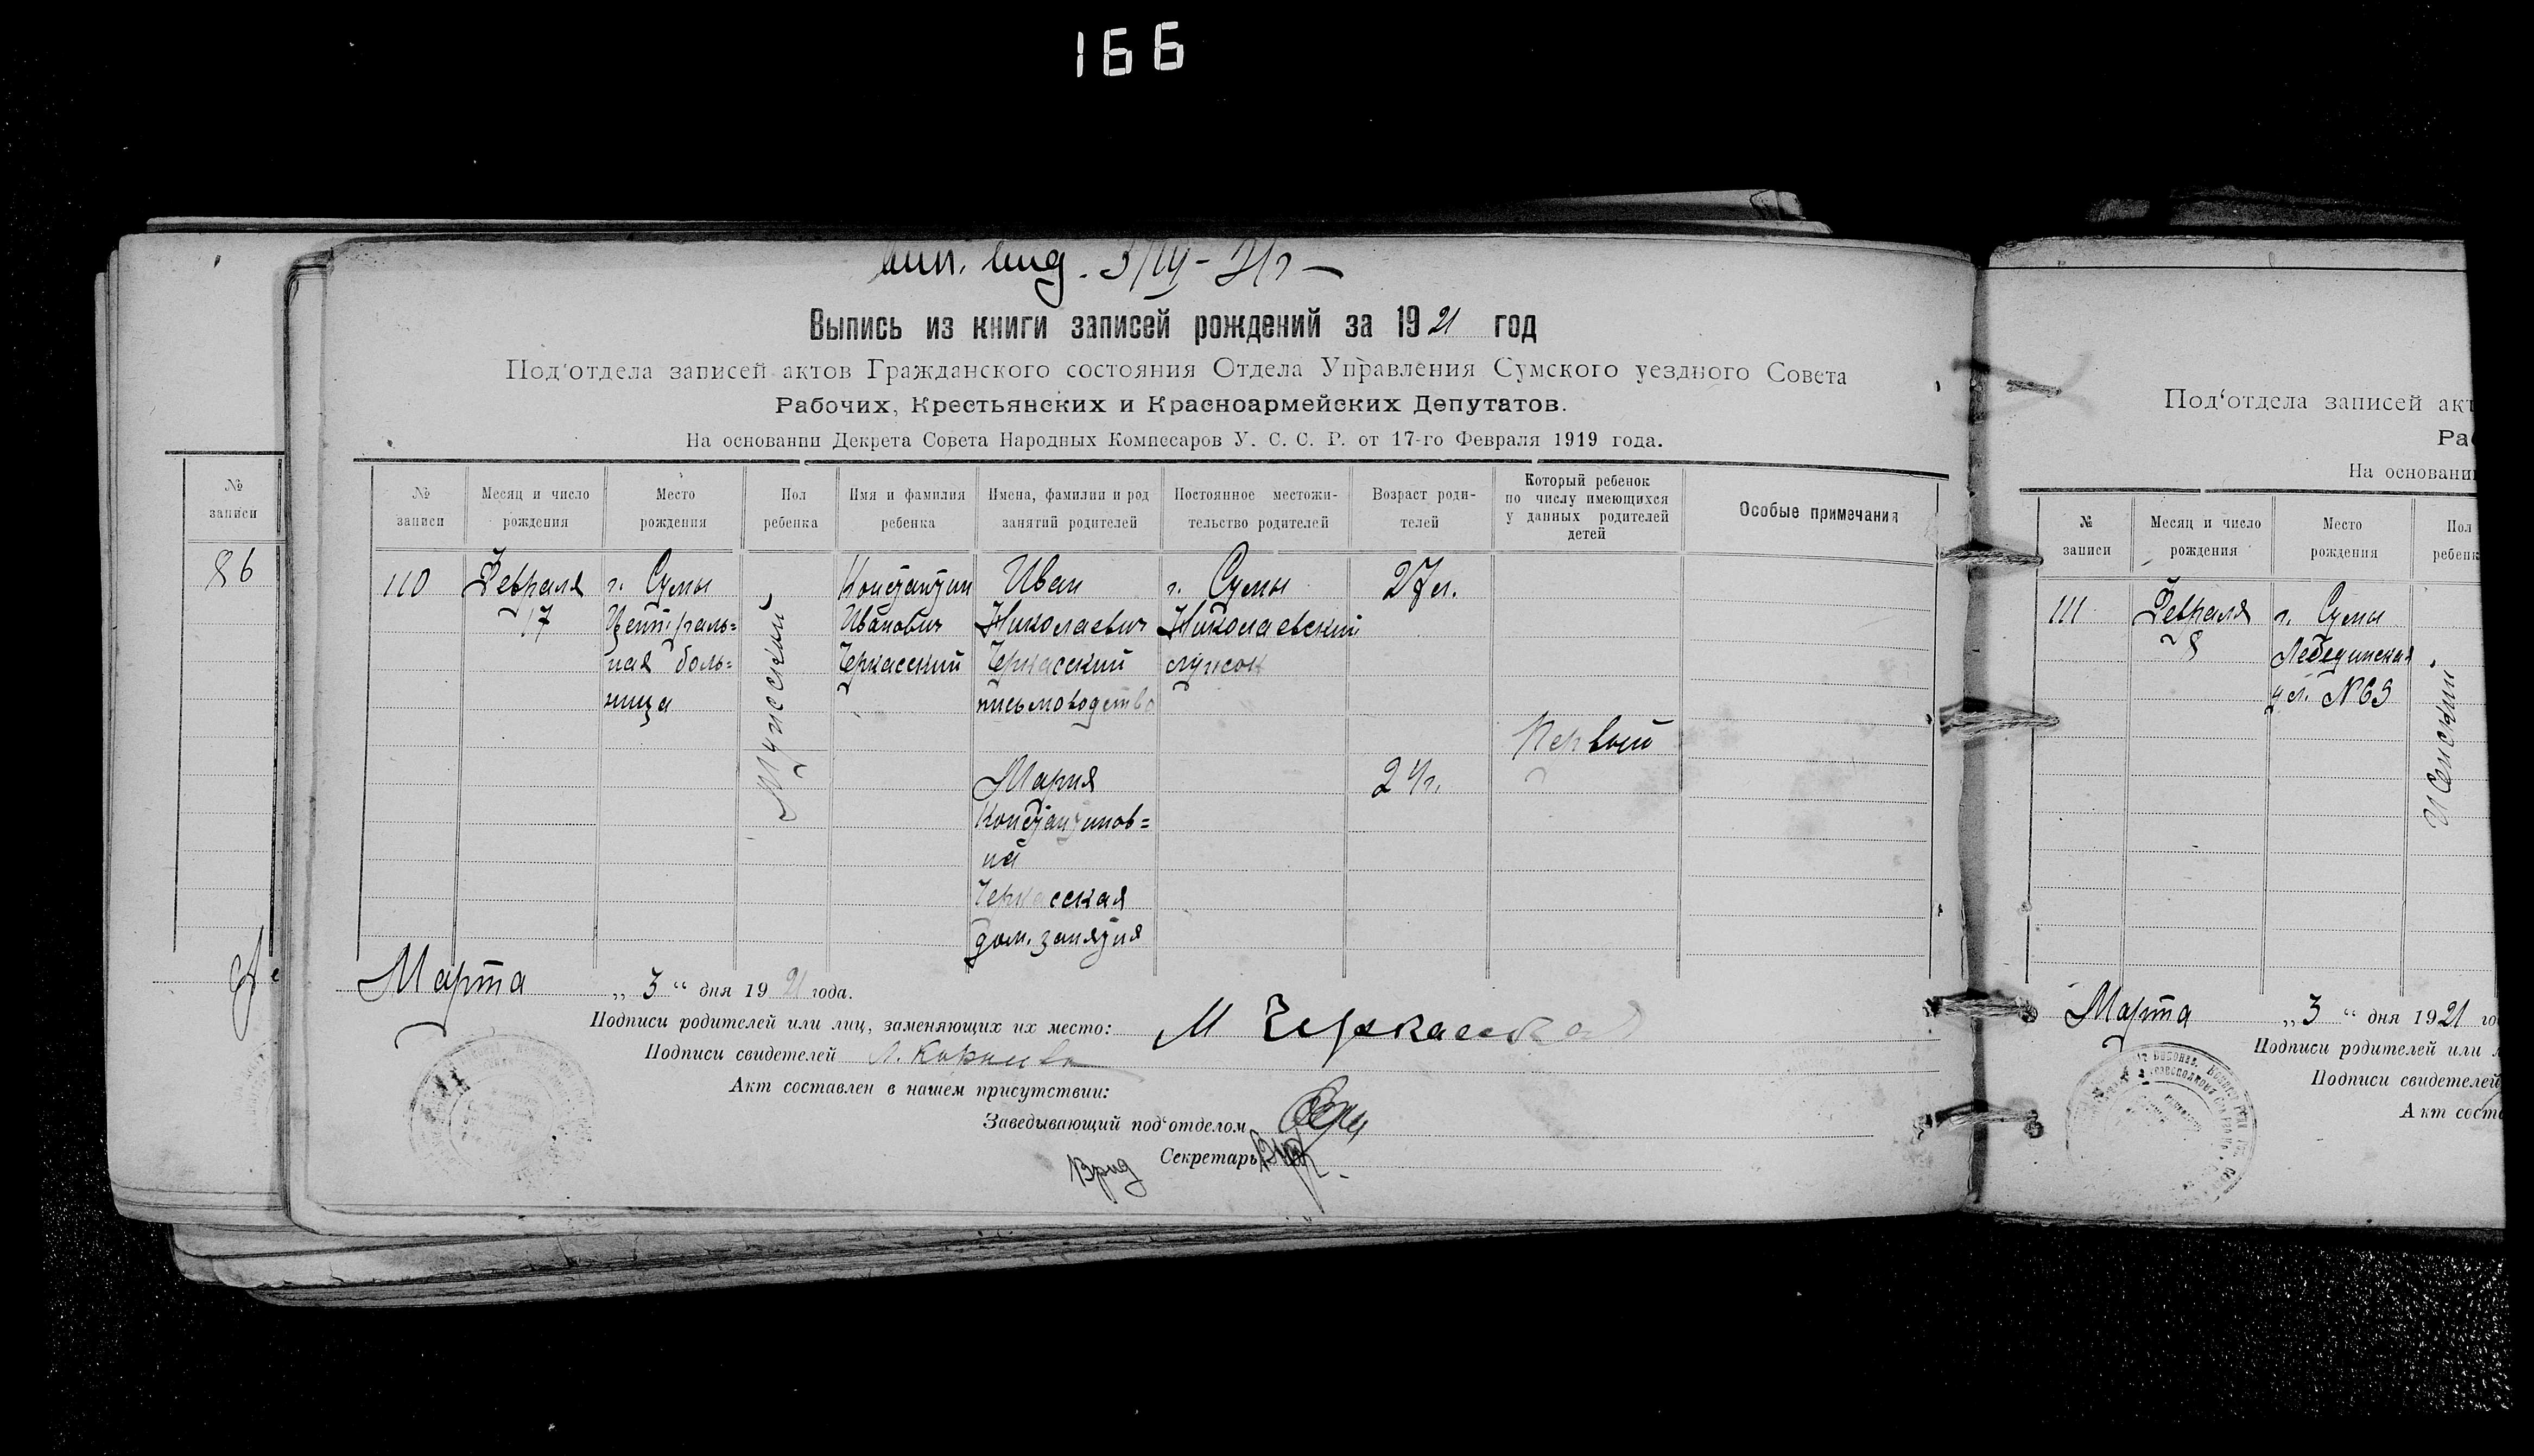 166
Вып. вид. 3/IV-21г
Выпись из книги записей рождений за 1921 год
Под‘отдела записей актов Гражданского состояния Отдела Управления Сумского уездного Совета
Рабочих, Крестьянских и Красноармейских Депутатов.
На основании Декрета Совета Народных Комиссаров У. С. С. Р. от 17-го Февраля 1919 года.
№ записи
Месяц и число рождения
Место рождения
Пол ребенка
Имя и фамилия ребенка
Имена, фамилии и род занятий родителей
Постоянное местожи-
тельство родителей
Возраст роди-
телей
Который ребенок
по числу имеющихся
у данных родителей
детей
Особые примечания
110
Февраля
17
г. Сумы
Централь=
ная боль=
ница
Мужеский
Константин
Иванович
Черкасский
Иван
Николаевич
Черкасский
письмоводство
Мария
Константинов=
на
Черкасская
дом. занятия
г. Сумы
Николаевский
лужок
27 л.
24 г.
Первый
Марта „3“ дня 1921 года.
Подписи родителей или лиц, заменяющих их место: М Черкасская
Подписи свидетелей
Акт составлен в нашем присутствии:
Заведывающий под‘отделом
Врид Секретарь
№
записи
86
Под‘отдела записей акт
Ра
На основани
№
записи
Месяц и число
рождения
Место
рождения
Пол
ребенк
111
Февраля
8
г. Сумы
Лебединская
ул. №63
Женский
Марта „3“ дня 1921 го
Подписи родителей или
Подписи свидетелей
Акт сост